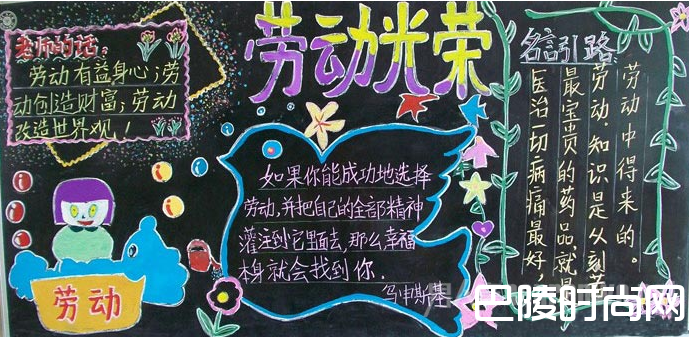 劳动光荣
老师的话:
劳动有益身心;劳
动创造财富;劳动
改造世界观!
劳动
如果你能成功地选择
劳动,并把自己的全部精神
灌注到它里面去,那么幸福
本身就会找到你.
乌申斯基
名言引路
医治一切病痛最好,
最宝贵的药品,就是
劳动。知识是从刻苦
劳动中得来的。
巴陵时尚网